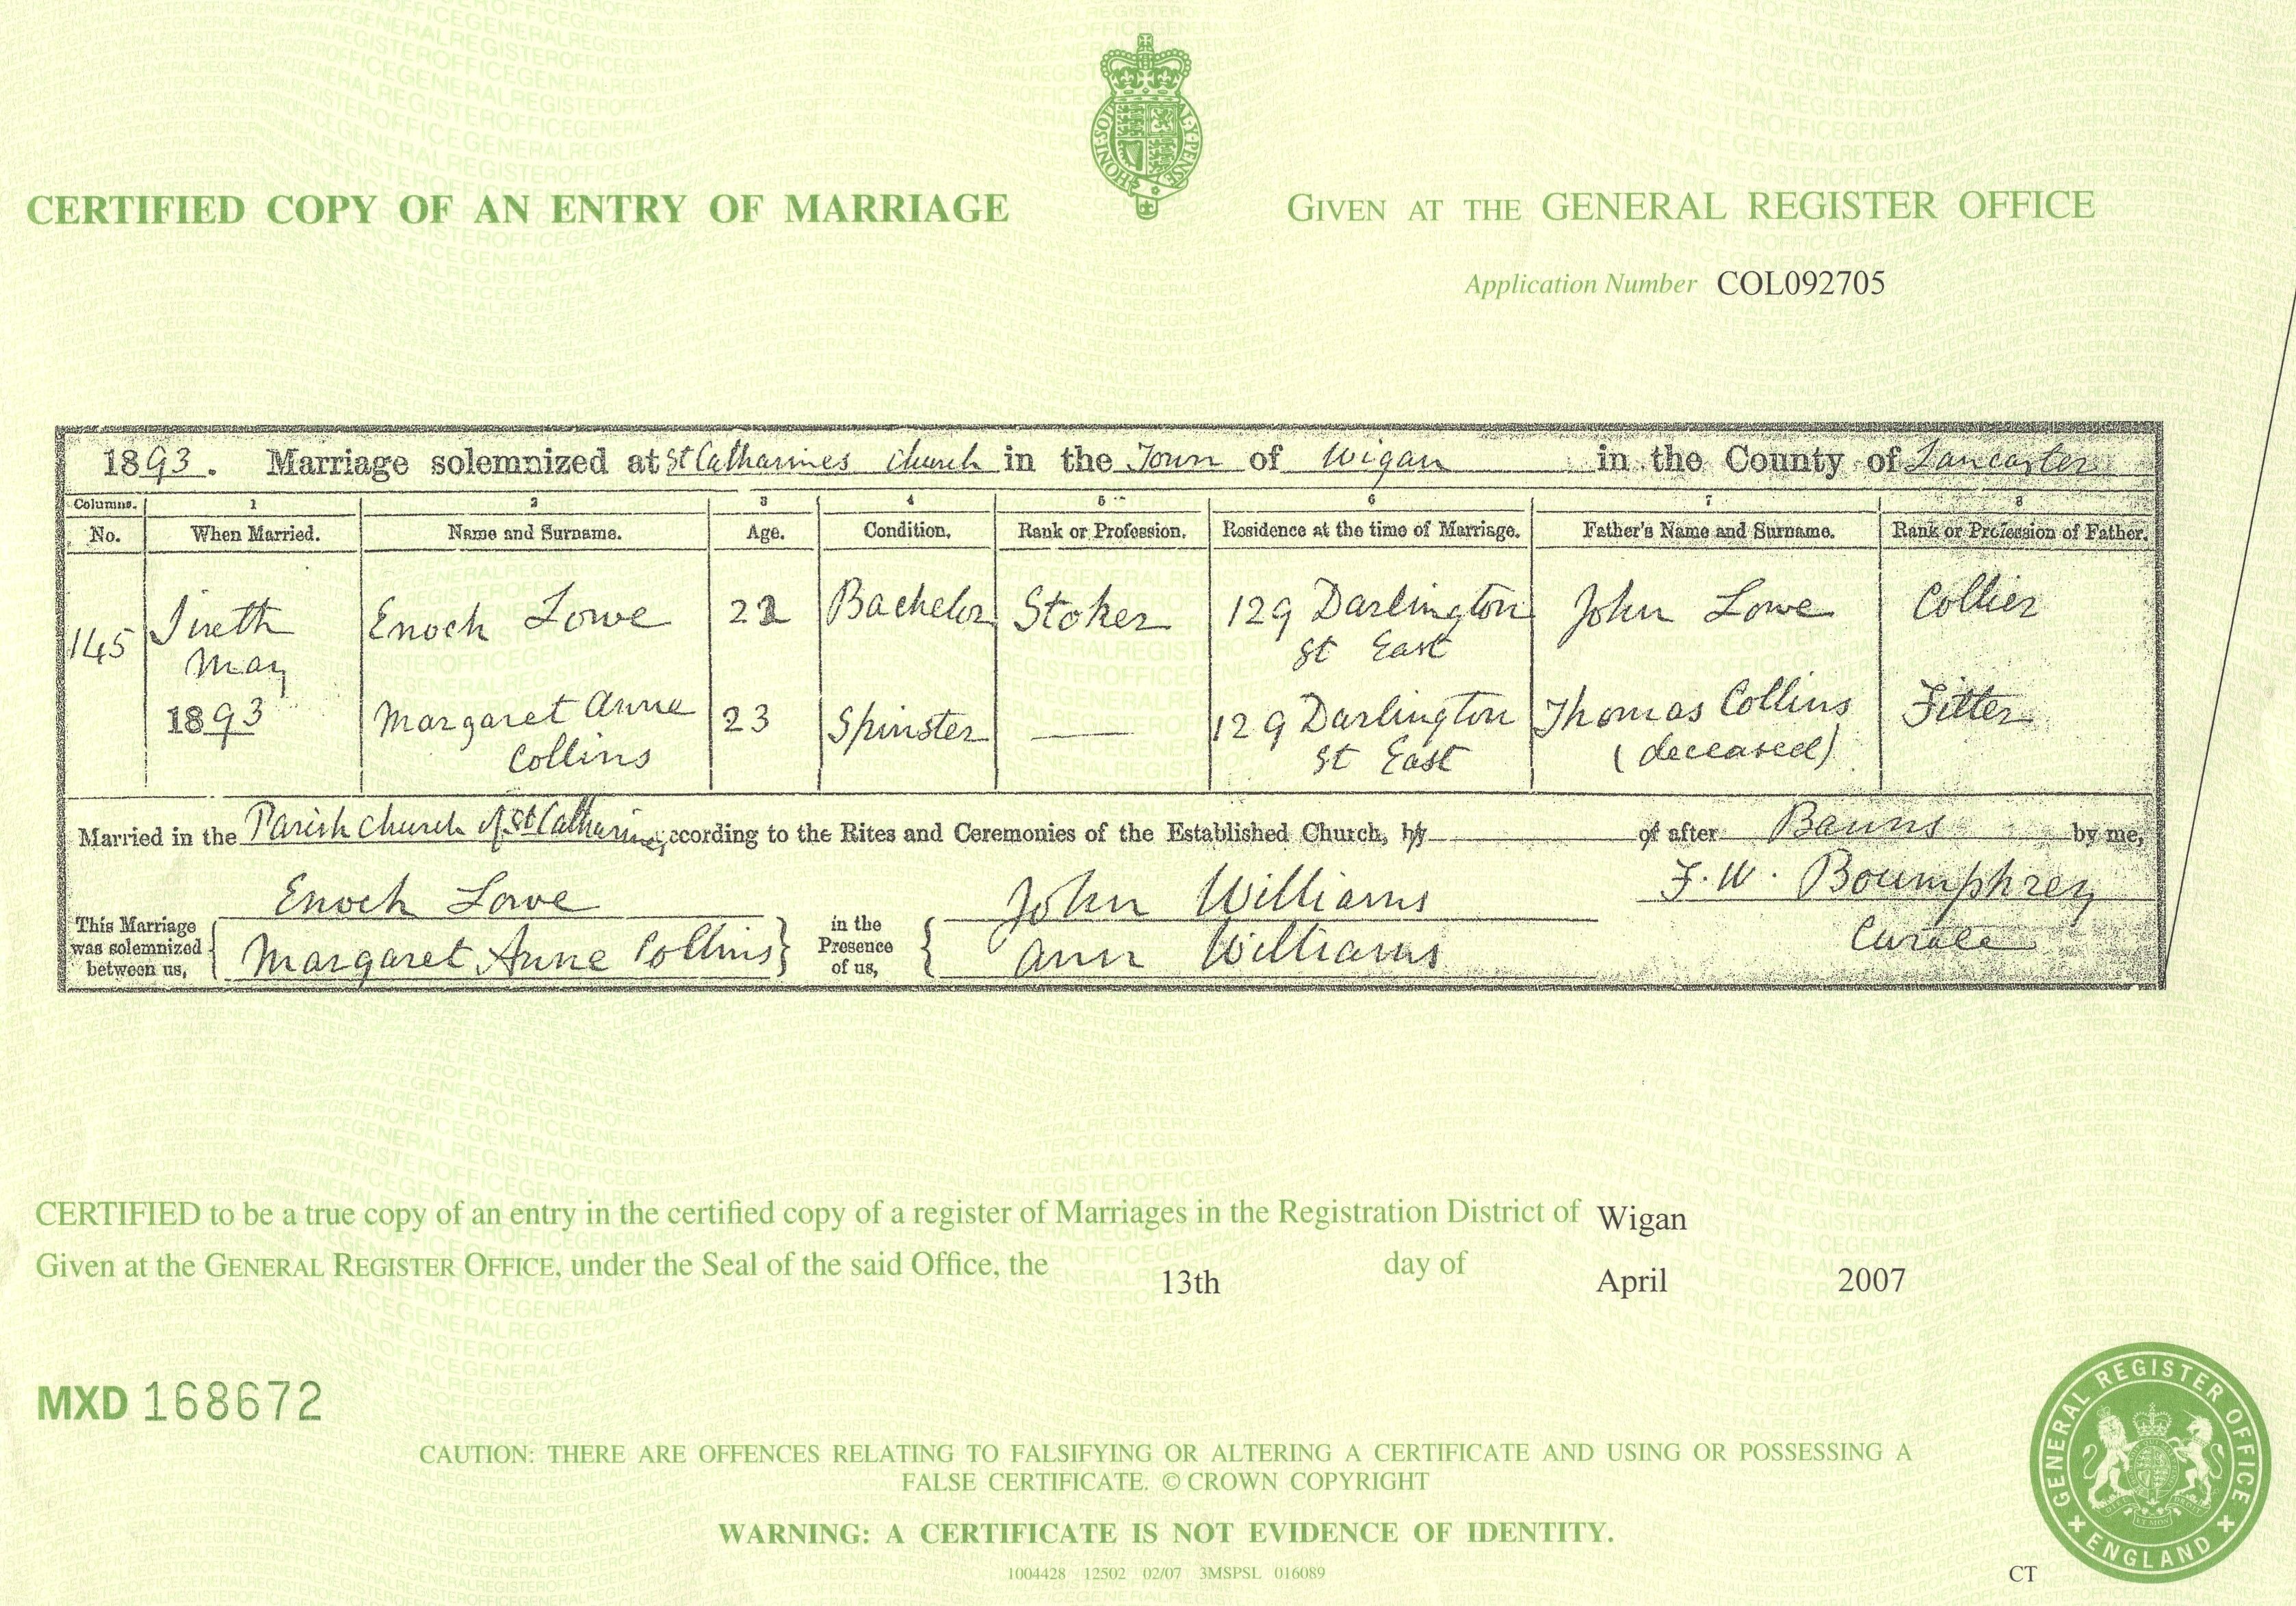 HONI·SOIT·Y·PENSE
CERTIFIED COPY OF AN ENTRY OF MARRIAGE
GIVEN AT THE GENERAL REGISTER OFFICE
Application Number COL092705
1893. Marriage solemnized at St Catharines Church in the Town of Wigan in the County of Lancaster
Columns. 1 2 3 4 5 6 7 8
No. When Married. Name and Surname. Age. Condition. Rank or Profession. Residence at the time of Marriage. Father's Name and Surname. Rank or Profession of Father.
145 May 1893 Enoch Lowe 22 Bachelor Stoker 129 Darlington St East John Lowe Collier
Margaret Anne Collins 23 Spinster — 129 Darlington St East Thomas Collins (deceased) Fitter
Married in the Parish Church of St Catharine according to the Rites and Ceremonies of the Established Church, by of after Banns by me,
Enoch Lowe John Williams F. W. Boumphrey
This Marriage was solemnized between us, Margaret Anne Collins in the Presence of us, Ann Williams Curate
CERTIFIED to be a true copy of an entry in the certified copy of a register of Marriages in the Registration District of Wigan
Given at the GENERAL REGISTER OFFICE, under the Seal of the said Office, the 13th day of April 2007
MXD 168672
CAUTION: THERE ARE OFFENCES RELATING TO FALSIFYING OR ALTERING A CERTIFICATE AND USING OR POSSESSING A
FALSE CERTIFICATE. © CROWN COPYRIGHT
WARNING: A CERTIFICATE IS NOT EVIDENCE OF IDENTITY.
1004428 12502 02/07 3MSPSL 016089
CT
GENERAL REGISTER OFFICE
ENGLAND